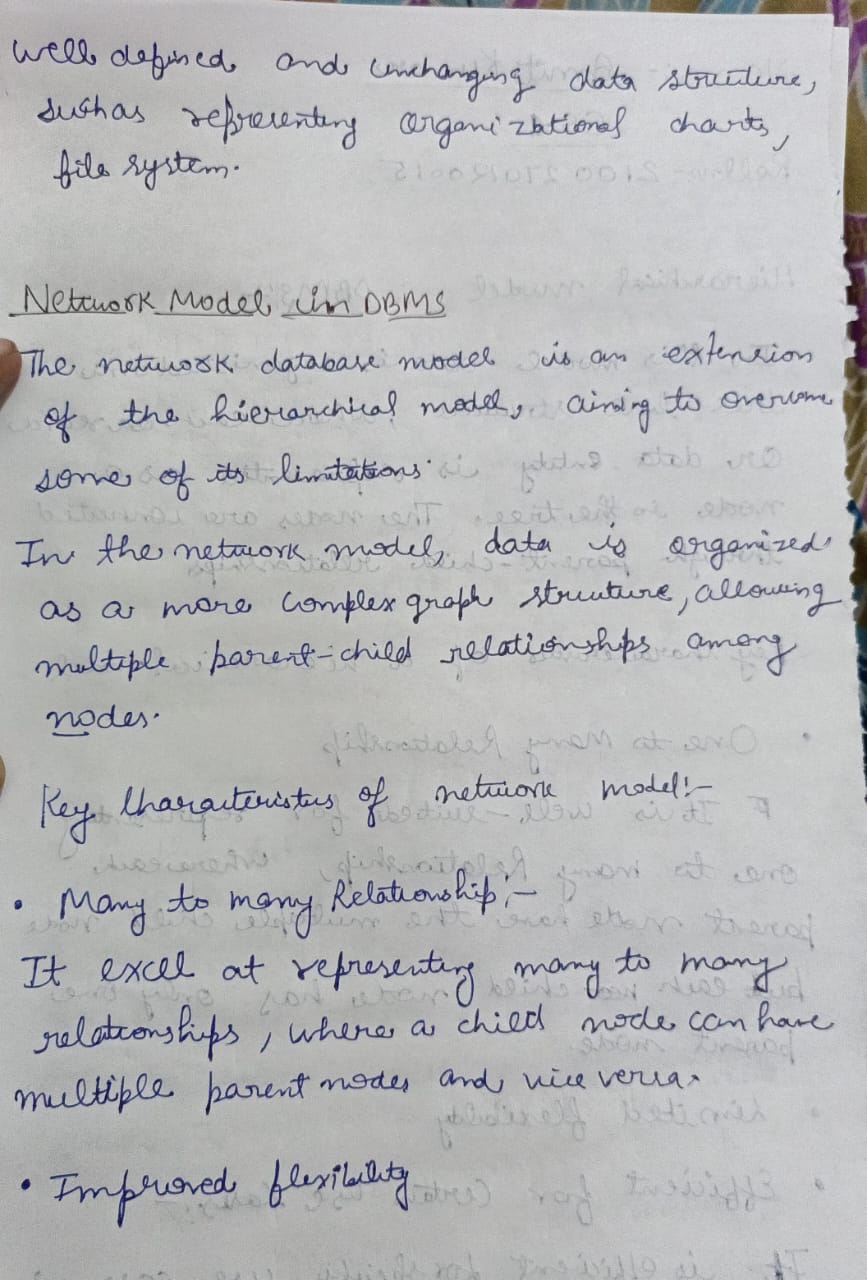 well defined and unchanging data structure,
such as representing organizational charts,
file system.
Network Model in DBMS
The network database model is an extension
of the hierarchical model, aiming to overcome
some of its limitations.
In the network model, data is organized
as a more complex graph structure, allowing
multiple parent-child relationships among
nodes.
Key Characteristics of network model:-
• Many to many Relationship:-
It excel at representing many to many
relationships, where a child node can have
multiple parent nodes and vice versa.
• Improved flexibility